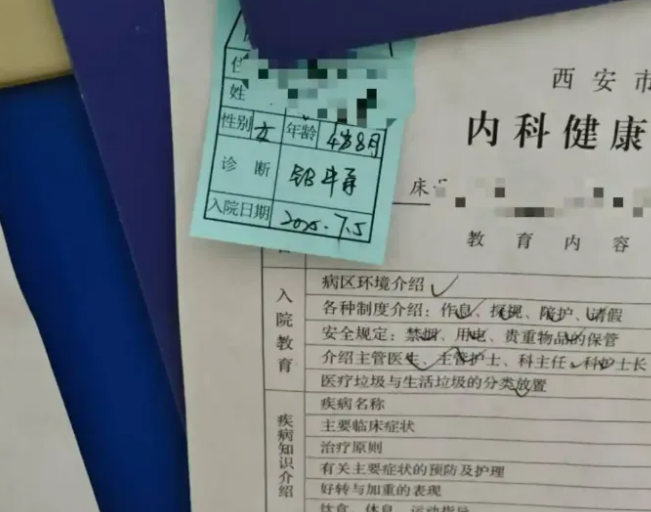 住
姓
性别 女 年龄 4岁8月
诊断 铅中毒
入院日期 2025.7.5
西安市
内科健康
床
教育内容
入院教育
病区环境介绍✓
各种制度介绍：作息、探视、陪护、请假
安全规定：禁烟、用电、贵重物品的保管
介绍主管医生、主管护士、科主任、科护士长
医疗垃圾与生活垃圾的分类放置
疾病知识介绍
疾病名称
主要临床症状
治疗原则
有关主要症状的预防及护理
好转与加重的表现
饮食、休息、运动指导